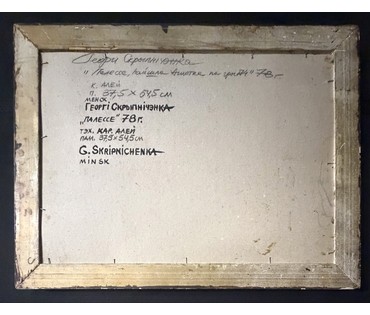 Георгі Скрыпнічэнка
"Палессе, 78 г.
К. АЛЕЙ
П. 37,5 × 54,5 см
МЕНСК,
ГЕОРГІ СКРЫПНІЧЭНКА
„ПАЛЕССЕ" 78 г.
ТЭХ. КАР. АЛЕЙ
ПАМ. 37,5×54,5 см
G. SKRIPNICHENKA
MINSK